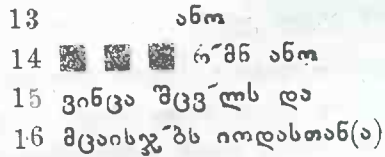 13 ანო
14 ▩ ▩ ▩ რ˜მნ ანო
15 ვინცა შცვ˜ლს და
16 მცაისჯ˜ბს იოდასთან(ა)